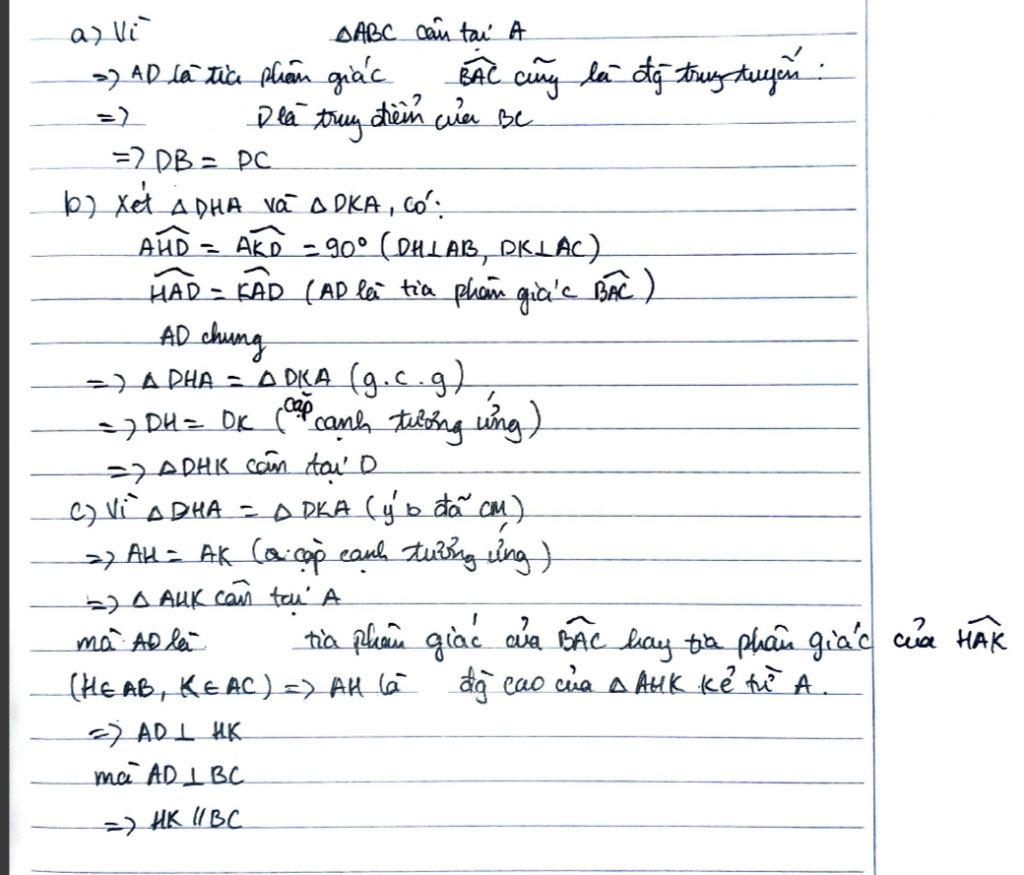 a) Vì △ABC cân tại A
=> AD là tia phân giác BAC cũng là đg trung tuyến.
=> D là trung điểm của BC
=> DB = DC
b) Xét △DHA và △DKA, có:
AHD = AKD = 90° (DH⊥AB, DK⊥AC)
HAD = KAD (AD là tia phân giác BAC)
AD chung
=> △DHA = △DKA (g.c.g)
=> DH = DK (cặp cạnh tương ứng)
=> △DHK cân tại D
c) Vì △DHA = △DKA (ý b đã CM)
=> AH = AK (2 cặp cạnh tương ứng)
=> △AHK cân tại A
mà AD là tia phân giác của BAC hay tia phân giác của HAK
(H∈AB, K∈AC) => AH là đg cao của △AHK kẻ từ A.
=> AD⊥HK
mà AD⊥BC
=> HK//BC